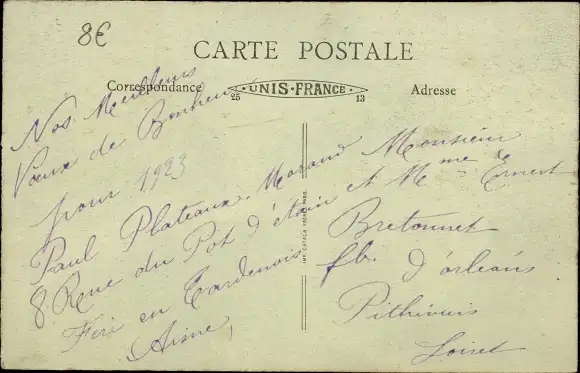 8€
CARTE POSTALE
Correspondance
UNIS-FRANCE
25
13
Adresse
Nos Meilleurs
Vœux de Bonheur
pour 1923
Paul Plateaux-Morand
8 Rue du Pot d'étain
Fère en Tardenois
Aisne
Monsieur
et Mme Ernest
Bretonnet
fb. d'orléans
Pithiviers
Loiret